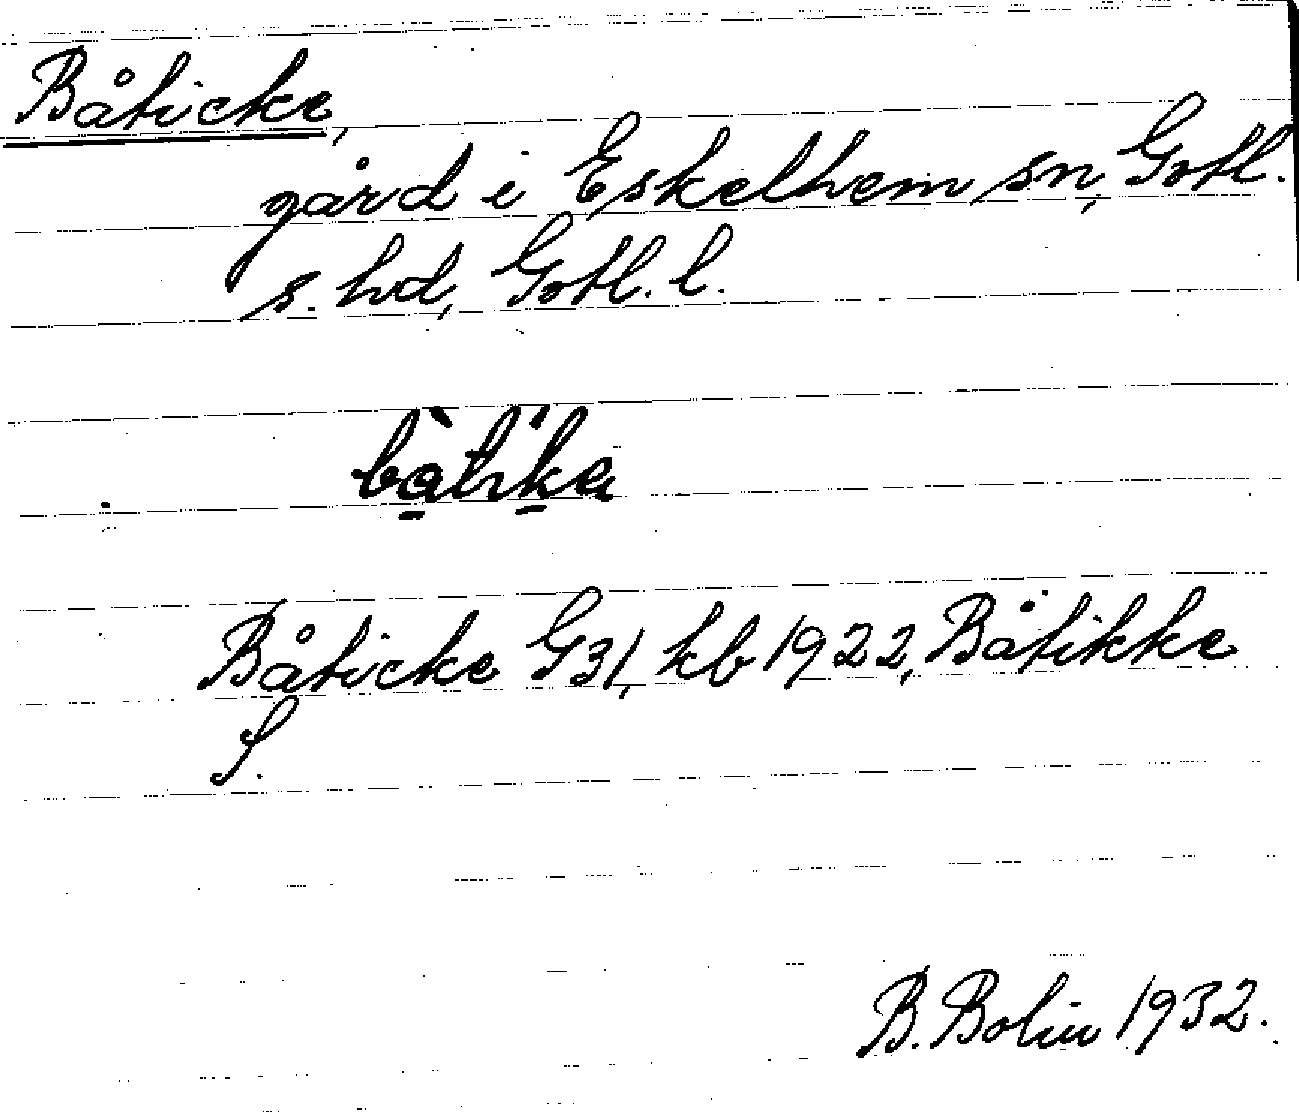 Båticke,
gård i Eskelhem sn, Gotl.
s. hd, Gotl. l.
bàti'ka
Båticke G31, kb 1922, Båtikke
S.
B. Bolin 1932.